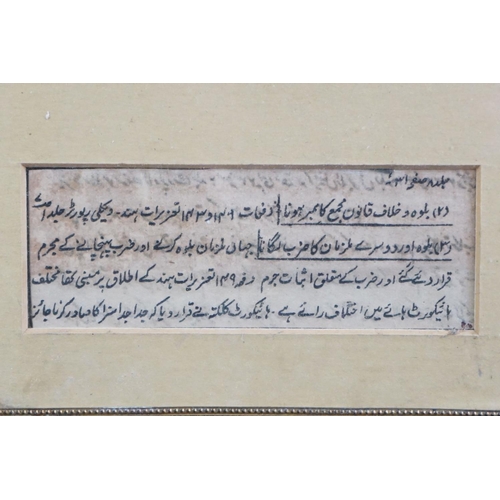 جلد ۸ صفحہ ۳۱
(۲) بلوہ و خلاف قانون مجمع کا ممبر ہونا دفعات ۱۴۱ و ۱۴۳ تعزیرات ہند۔ ویکلی رپورٹر جلد
(۳) بلوہ اور دوسرے ملزمان کا ضرب لگانا جہاں ملزمان بلوہ کرنے اور ضرب پہنچانے کے مجرم
قرار دئے گئے اور ضرب کے متعلق اثبات جرم دفعہ ۱۴۹ تعزیرات ہند کے اطلاق پر مبنی تھا مختلف
ہائیکورٹ ہائے میں اختلاف رائے ہے۔ ہائیکورٹ کلکتہ نے قرار دیا کہ جدا جدا سزا کا صادر کرنا جائز